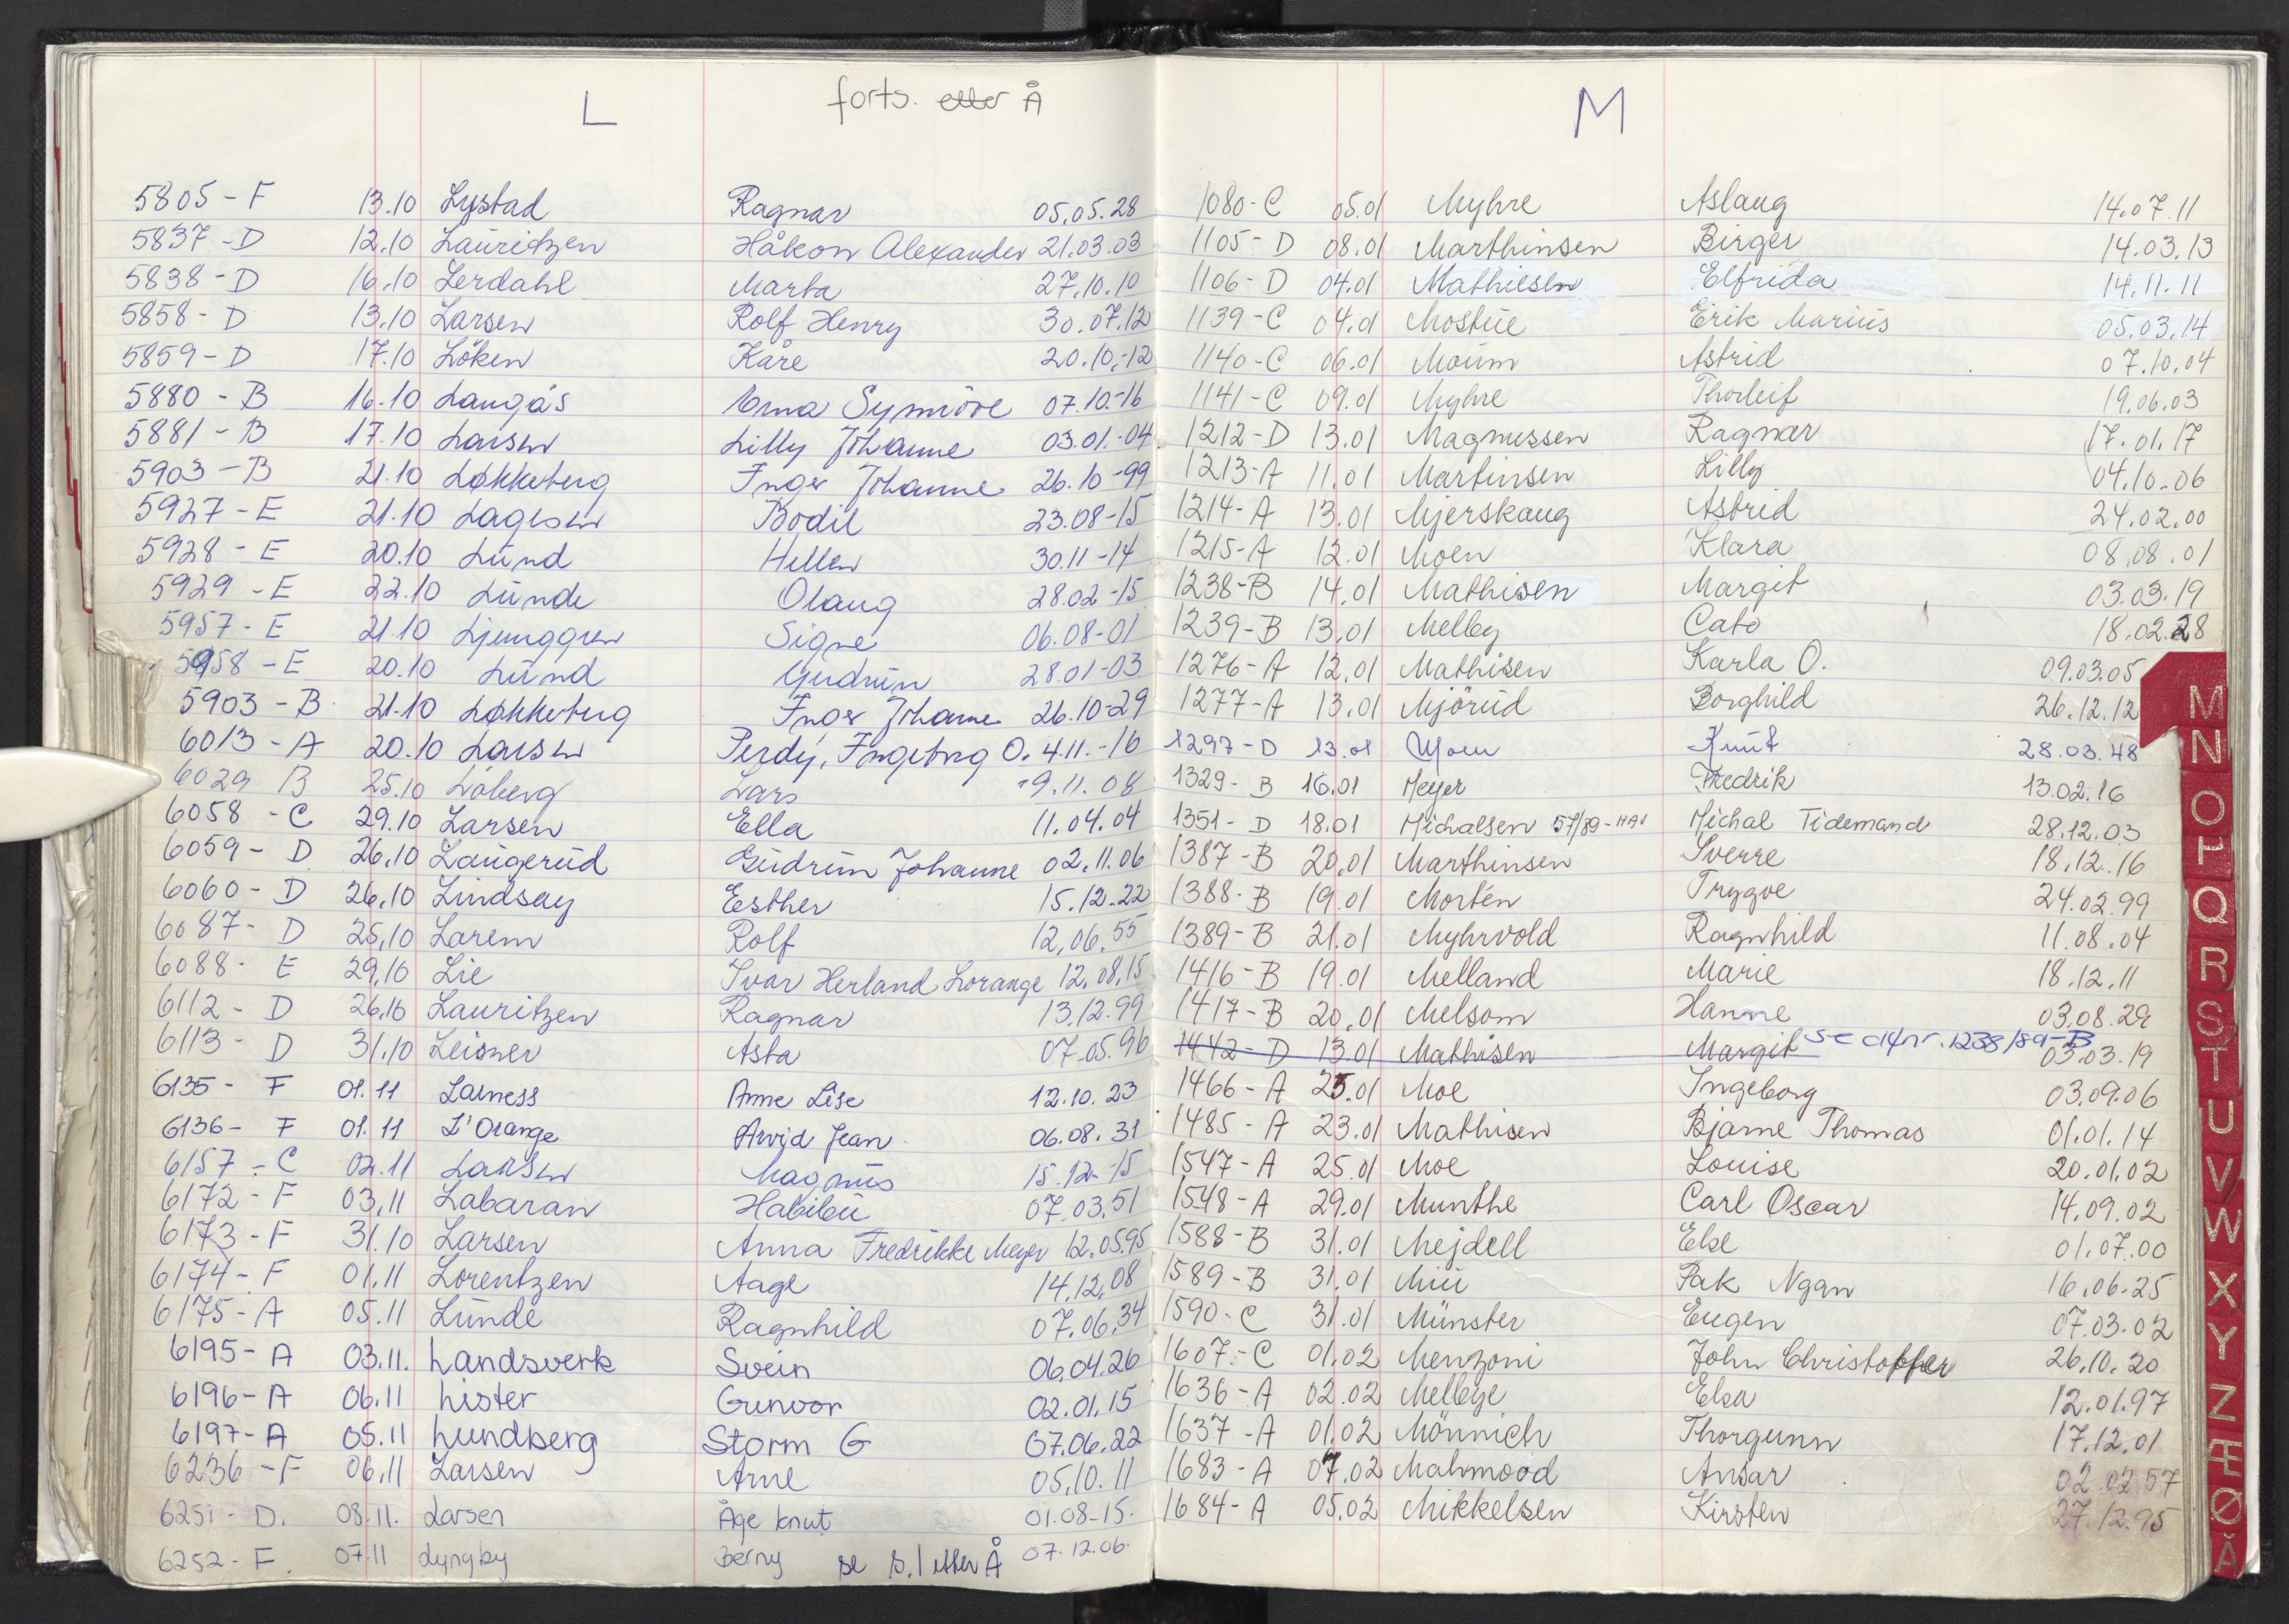 L
forts. etter Å
5805 - F 13.10 Lystad Ragnar 05.05.28
5837 - D 12.10 Lauritzen Håkon Alexander 21.03.03
5838 - D 16.10 Lerdahl Marta 27.10.10
5858 - D 13.10 Larsen Rolf Henry 30.07.12
5859 - D 17.10 Löken Kåre 20.10.-12
5880 - B 16.10 Langås Synnöve 07.10.-16
5881 - B 17.10 Larsen Lilly Johanne 03.01.-04
5903 - B 21.10 Løkkeberg Inger Johanne 26.10-99
5927 - E 21.10 Lagesen Bodil 23.08-15
5928 - E 20.10 Lund Hellen 30.11-14
5929 - E 22.10 Lunde Olaug 28.02-15
5957 - E 21.10 Ljunggren Signe 06.08-01
5958 - E 20.10 Lund Gudrun 28.01-03
5903 - B 21.10 Løkkeberg Inger Johanne 26.10-29
6013 - A 20.10 Larsen Perdy, Ingeborg O. 4.11.-16
6029 B 25.10 Löberg Lars 9.11.08
6058 - C 29.10 Larsen Ella 11.04.04
6059 - D 26.10 Laugerud Gudrun Johanne 02.11.06
6060 - D 26.10 Lindsay Esther 15.12.22
6087 - D 25.10 Larem Rolf 12.06.55
6088 - E 29.10 Lie Ivar Herland Lorange 12.08.15
6112 - D 26.10 Lauritzen Ragnar 13.12.99
6113 - D 31.10 Leisner Asta 07.05.96
6135 - F 01.11 Larness Anne Lise 12.10.23
6136 - F 01.11 L'Orange Arvid Jean 06.08.31
6157 - C 02.11 Larsen Magnus 15.12-15
6172 - F 03.11 Labaran Habibu 07.03.51
6173 - F 31.10 Larsen Anna Fredrikke Meyer 12.05.95
6174 - F 01.11 Lorentzen Aage 14.12.08
6175 - A 05.11 Lunde Ragnhild 07.06.34
6195 - A 03.11. Landsverk Svein 06.04.26
6196 - A 06.11 Lister Gunvor 02.01.15
6197 - A 05.11 Lundberg Storm G 07.06.22
6236 - F 06.11 Larsen Arne 05.10.11
6251 - D. 08.11. Larsen Åge Knut 01.08-15.
6252 - F. 07.11 Lyngby Berny se s. 1 etter Å 07.12.06.
M
1080 - C 05.01 Myhre Aslaug 14.07.11
1105 - D 08.01 Marthinsen Birger 14.03.13
1106 - D 04.01 Mathiesen Elfrida 14.11.11
1139 - C 04.01 Mostue Erik Marius 05.03.14
1140 - C 06.01 Moum Astrid 07.10.04
1141 - C 09.01 Myhre Thorleif 19.06.03
1212 - D 13.01 Magnussen Ragnar 17.01.17
1213 - A 11.01 Martinsen Lilly 04.10.06
1214 - A 13.01 Mjerskaug Astrid 24.02.00
1215 - A 12.01 Moen Klara 08.08.01
1238 - B 14.01 Mathisen Margit 03.03.19
1239 - B 13.01 Melby Cato 18.02.28
1276 - A 12.01 Mathisen Karla O. 09.03.05
1277 - A 13.01 Mjörud Borghild 26.12.12
1297 - D 13.01 Moen Knut 28.03.48
1329 - B 16.01 Meyer Fredrik 13.02.16
1351 - D 18.01 Michalsen 57/89 Michal Tidemand 28.12.03
1387 - B 20.01 Marthinsen Sverre 18.12.16
1388 - B 19.01 Mortén Trygve 24.02.99
1389 - B 21.01 Myhrvold Ragnhild 11.08.04
1416 - B 19.01 Melland Marie 18.12.11
1417 - B 20.01 Melsom Hanne 03.08.29
1442 - D 13.01 Mathisen Margit se d4nr. 1238/89-B 03.03.19
1466 - A 25.01 Moe Ingeborg 03.09.06
1485 - A 23.01 Mathisen Bjarne Thomas 01.01.14
1547 - A 25.01 Moe Louise 20.01.02
1548 - A 29.01 Munthe Carl Oscar 14.09.02
1588 - B 31.01 Mejdell Else 01.07.00
1589 - B 31.01 Mui Pak Ngan 16.06.25
1590 - C 31.01 Münster Eugen 07.03.02
1607 - C 01.02 Menzoni John Christoffer 26.10.20
1636 - A 02.02 Mellbye Elsa 12.01.97
1637 - A 01.02 Mönnich Thorgunn 17.12.01
1683 - A 07.02 Mahmood Ansar 02.02.57
1684 - A 05.02 Mikkelsen Kirsten 27.12.95
M
N
O
P
Q
R
S
T
U
V
W
X
Y
Z
Æ
Ø
Å